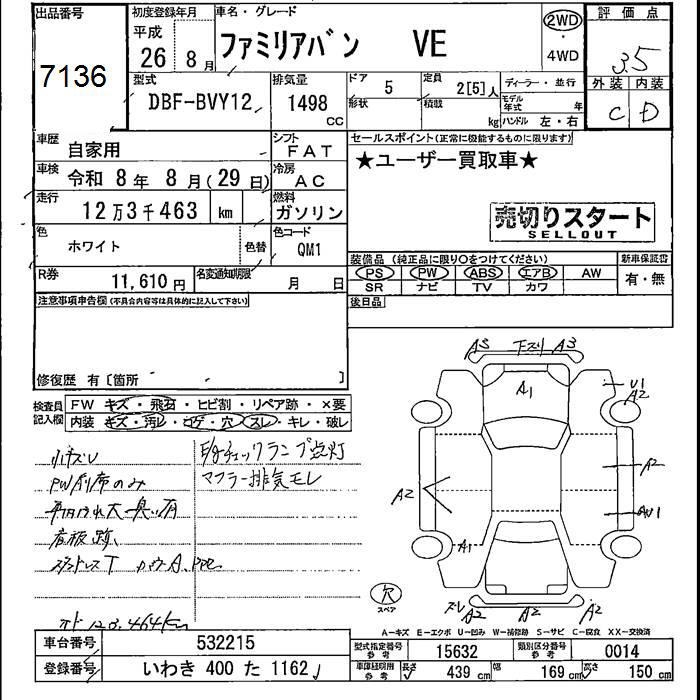 出品番号
7136
初度登録年月
平成
26年 8月
車名・グレード
ファミリアバン VE
2WD
・
4WD
評価点
3.5
外装 内装
C D
型式
DBF-BVY12
排気量
1498
CC
ドア
5
形状
定員
2[5]人
積載
kg
ディーラー・並行
モデル年式 年
ハンドル 左・右
車歴
自家用
シフト
FAT
車検
令和 8年 8月(29日)
冷房
AC
走行
12万3千463 km
燃料
ガソリン
色
ホワイト
色替
色コード
QM1
R券
11,610円
名変通知期限
月 日
セールスポイント(正常に機能するものに限ります)
★ユーザー買取車★
売切りスタート
SELLOUT
装備品 (純正品に限り○をつけてください)
PS PW ABS エアB AW
SR ナビ TV カワ
新車保証書
有・無
後日品
注意事項申告欄(不具合内容等は具体的に記入して下さい)
修復歴 有〔箇所 〕
検査員記入欄
FW キズ・飛石・ヒビ割・リペア跡・×要
内装 キズ・汚レ・コゲ・穴・スレ・キレ・破レ
小キズU
E/gチェックランプ点灯
PW助席のみ
マフラー排気モレ
看板跡
オド 123,464km
A3 下スリ A3
A1
U1
A2
A2
A2
AU1
A1
欠
スペア
ズレ A2 A2 A2
A-キズ E-エクボ U-凹み W-補修跡 S-サビ C-腐食 XX-交換済
車台番号
532215
登録番号
いわき 400 た 1162
型式指定番号
参考
15632
類別区分番号
参考
0014
車庫証明用
参考
長さ 439 cm 幅 169 cm 高さ 150 cm